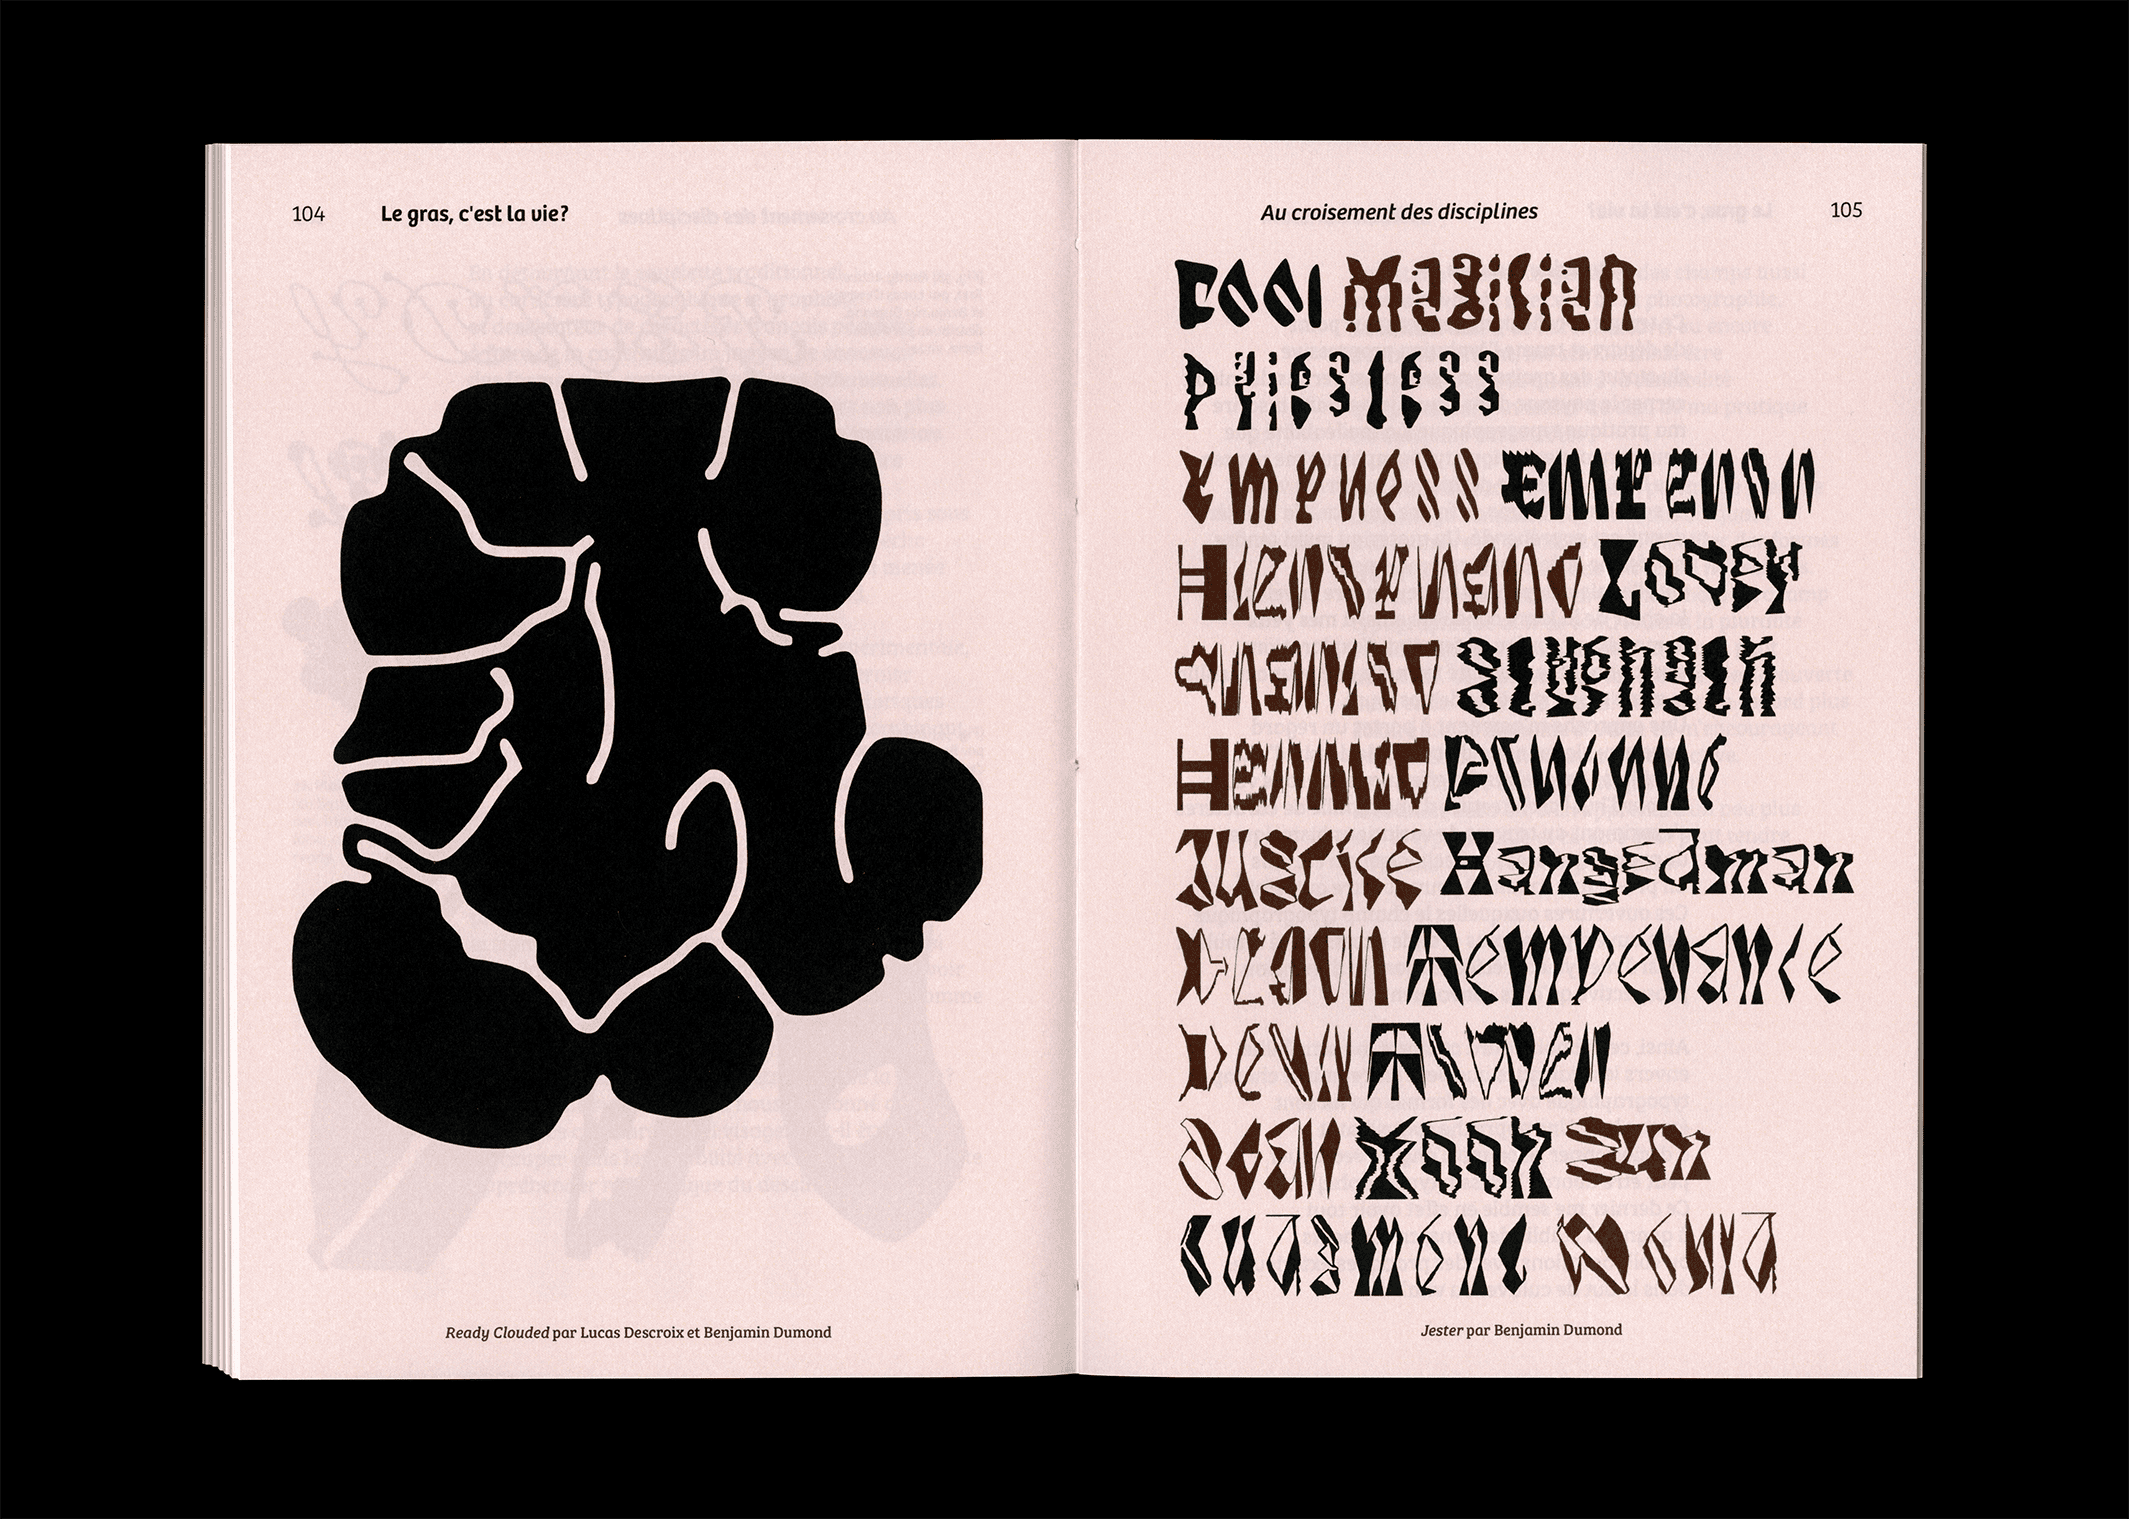 104 Le gras, c'est la vie?
Ready Clouded par Lucas Descroix et Benjamin Dumond
Au croisement des disciplines 105
Fool Magician
Priestess
Empress Emperor
Hierophant Lover
Chariot Strength
Hermit Fortune
Justice Hangedman
Death Temperance
Devil Tower
Star Moon Sun
Judgment World
Jester par Benjamin Dumond